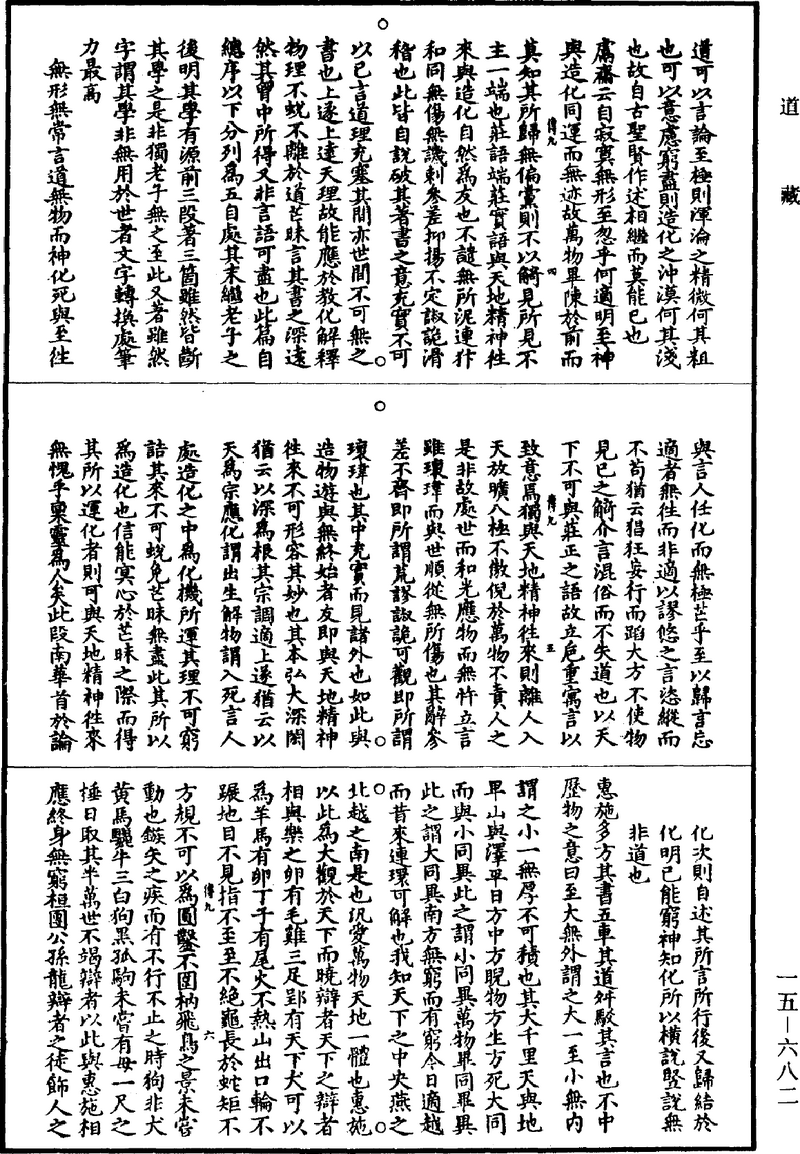 道藏
道可以言論至極則渾淪之精微何其粗
也可以意慮窮盡則造化之沖漠何其淺
也故自古聖賢作述相繼而莫能已也
鬳齋云自寂寞無形至忽乎何適明至神
與造化同運而無迹故萬物畢陳於前而
莫知其所歸無偏黨則不以觭見所見不
主一端也莊語端莊實語與天地精神往
來與造化自然為友也不譴無所泥連犿
和同無傷無譏刺參差抑揚不定諔詭滑
稽也此皆自說破其著書之意充實不可
以已言道理充塞其間亦世間不可無之
書也上遂上達天理故能應於教化解釋
物理不蛻不離於道芒昧言其書之深遠
然其胷中所得又非言語可盡也此篇自
總序以下分列為五自處其末繼老子之
後明其學有源前三段著三箇雖然皆斷
其學之是非獨老子無之至此又著雖然
字謂其學非無用於世者文字轉換處筆
力最高
無形無常言道無物而神化死與至往
傳九
四
與言人任化而無極芒乎至以歸言忘
適者無往而非適以謬悠之言恣縱而
不苟猶云猖狂妄行而蹈大方不使物
見已之觭介言混俗而不失道也以天
下不可與莊正之語故立巵重寓言以
致意焉獨與天地精神往來則離人入
天放曠八極不傲倪於萬物不責人之
是非故處世而和光應物而無忤立言
雖瓌瑋而與世順從無所傷也其辭參
差不齊即所謂荒謬諔詭可觀即所謂
瓌瑋也其中充實而見諸外也如此與
造物遊與無終始者友即與天地精神
往來不可形容其妙也其本弘大深閎
猶云以深為根其宗調適上遂猶云以
天為宗應化謂出生解物謂入死言人
處造化之中為化機所運其理不可窮
詰其來不可蛻免芒昧無盡此其所以
為造化也信能冥心於芒昧之際而得
其所以運化者則可與天地精神往來
無愧乎稟靈為人矣此段南華首於論
傳九
五
化次則自述其所言所行後又歸結於
化明已能窮神知化所以橫說豎說無
非道也
惠施多方其書五車其道舛駁其言也不中
歷物之意曰至大無外謂之大一至小無內
謂之小一無厚不可積也其大千里天與地
卑山與澤平日方中方睨物方生方死大同
而與小同異此之謂小同異萬物畢同畢異
此之謂大同異南方無窮而有窮今日適越
而昔來連環可解也我知天下之中央燕之
北越之南是也汎愛萬物天地一體也惠施
以此為大觀於天下而曉辯者天下之辯者
相與樂之卵有毛雞三足郢有天下犬可以
為羊馬有卵丁子有尾火不熱山出口輪不
蹍地目不見指不至至不絕龜長於蛇矩不
方規不可以為圓鑿不圍枘飛鳥之景未嘗
動也鏃矢之疾而有不行不止之時狗非犬
黃馬驪牛三白狗黑孤駒未嘗有母一尺之
捶日取其半萬世不竭辯者以此與惠施相
應終身無窮桓團公孫龍辯者之徒飾人之
傳九
六
一五—六八二